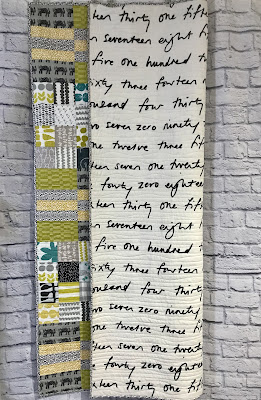 thirty one fifte
seventeen eight
five one hundred
sixty three fourteen
four thirty
seven zero ninety
one twelve three
seven one twenty
forty zero eightee
thirty one fifte
seventeen eight
five one hundred
sixty three fourteen
four thirty
seven zero ninety
one twelve three
seven one twenty
forty zero eightee
thirty one fifte